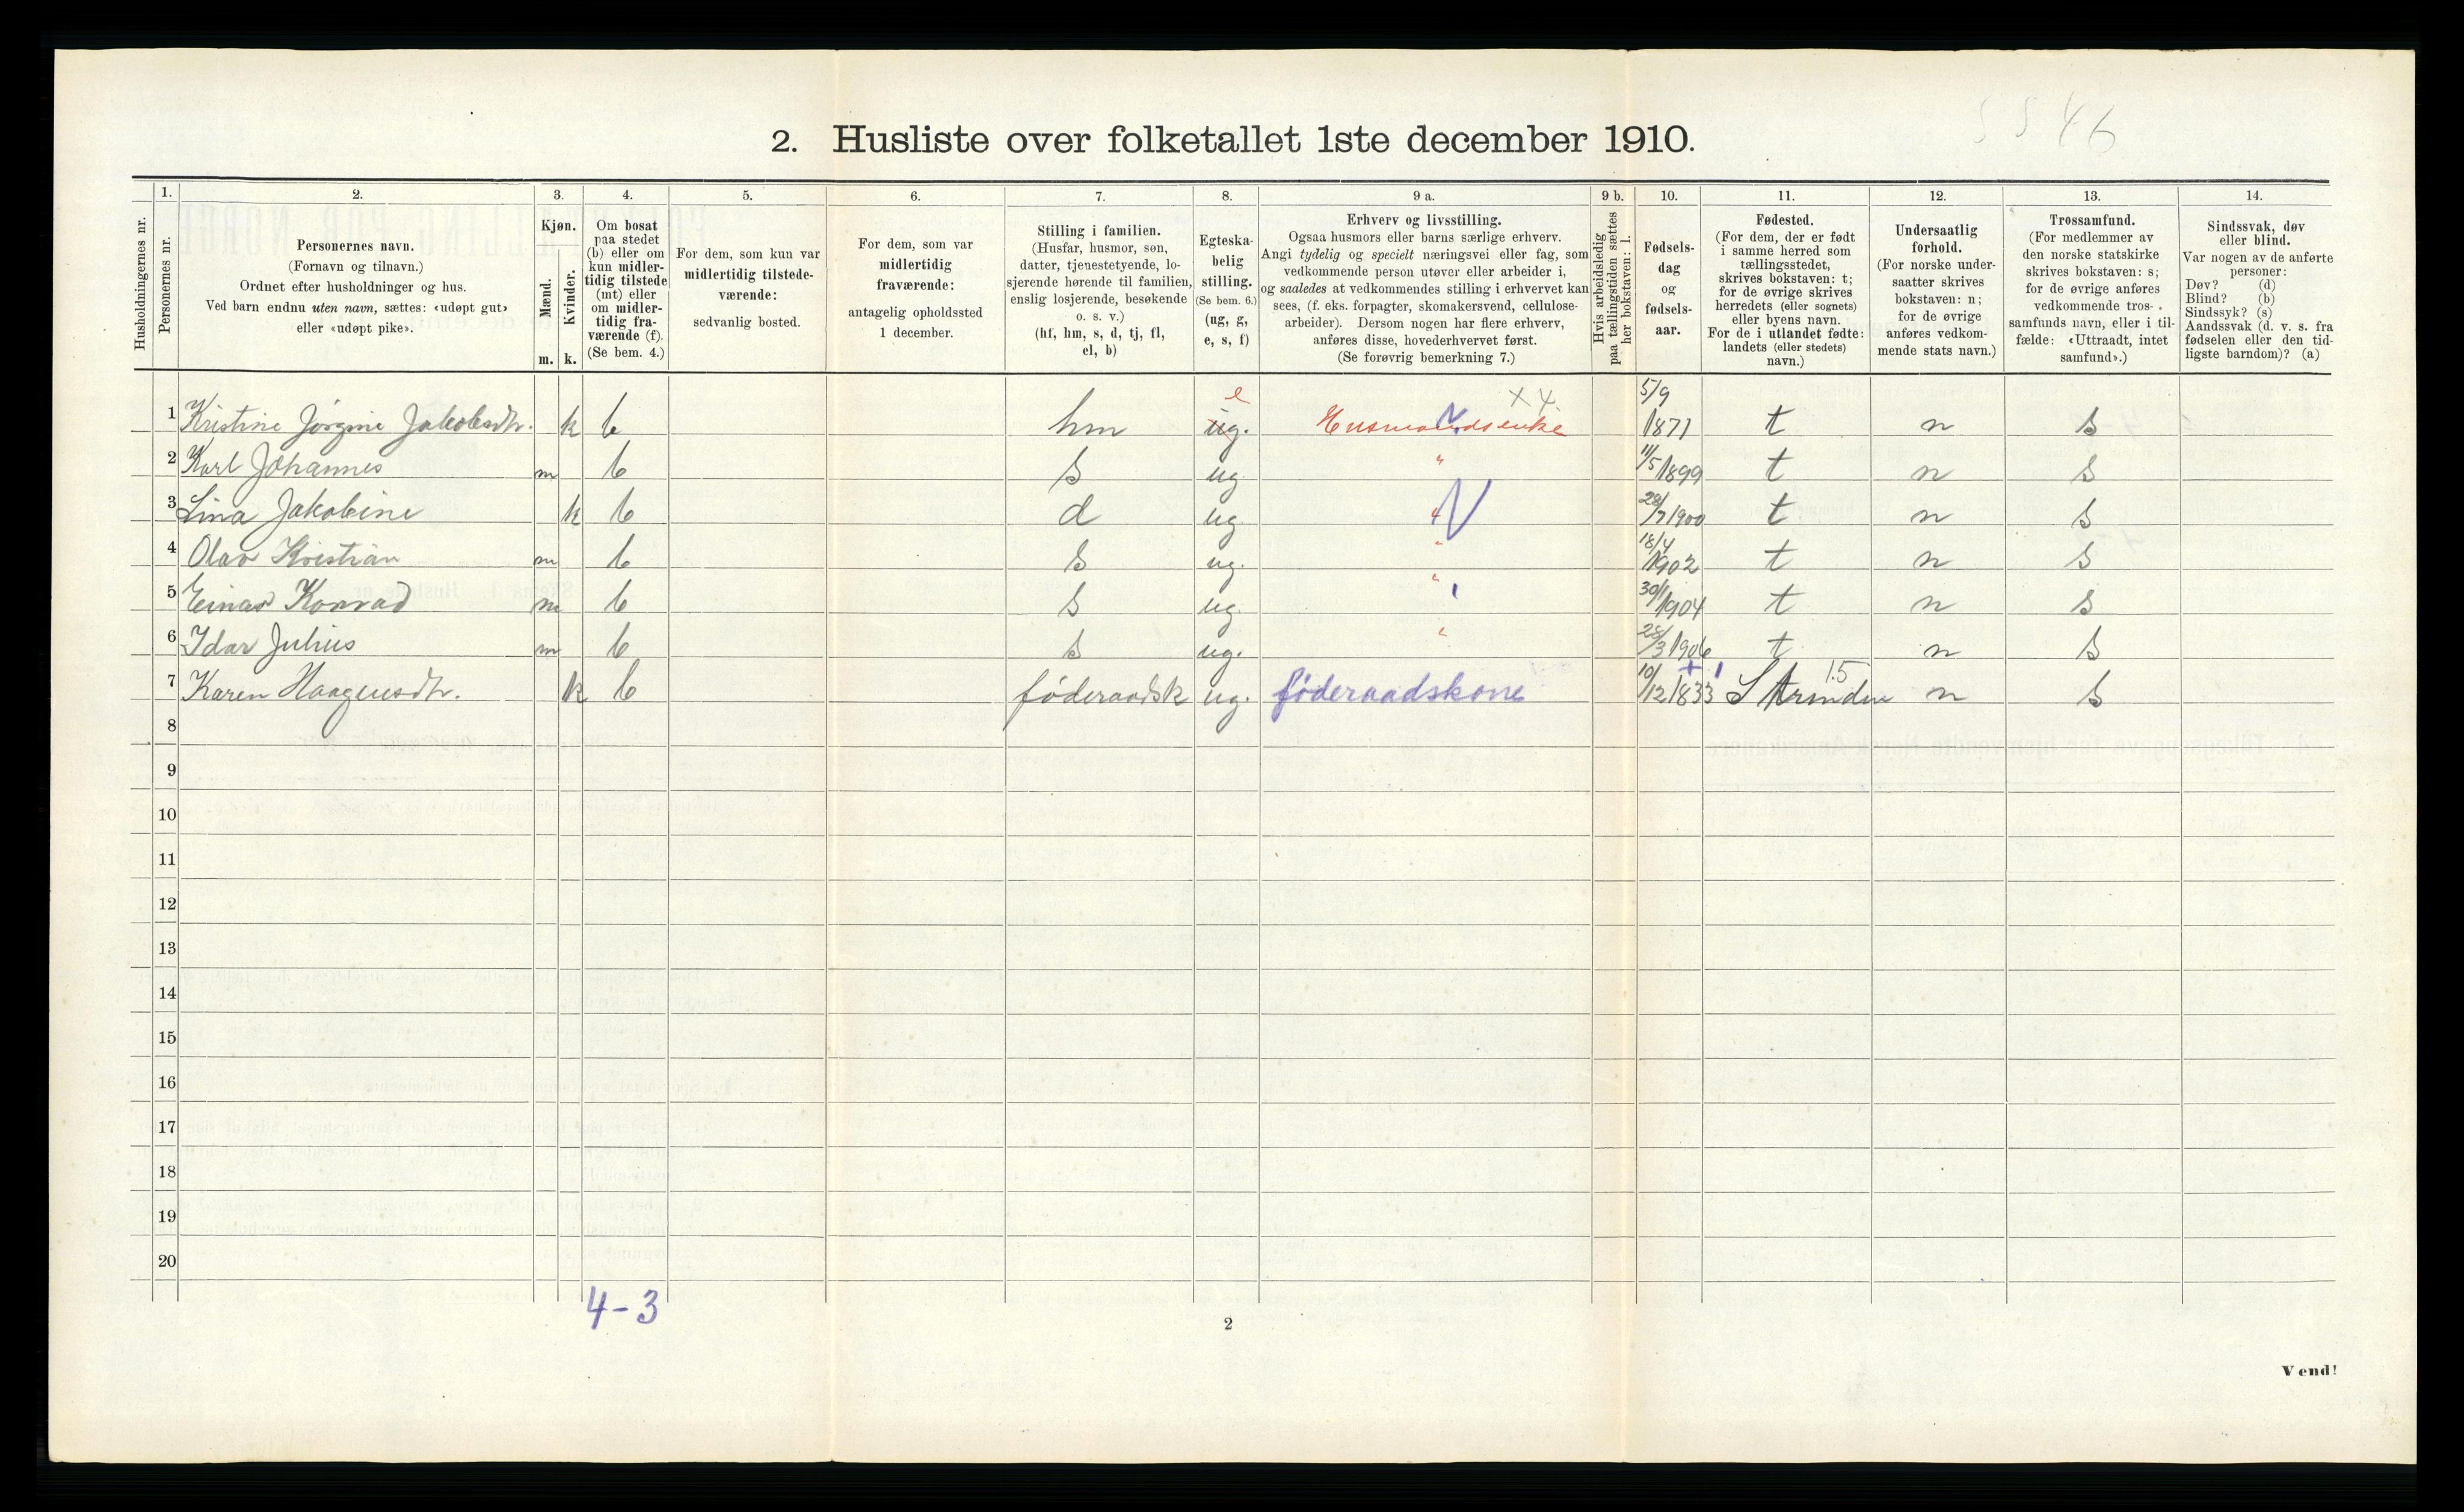 5546
2. Husliste over folketallet 1ste december 1910.
Husholdningernes nr.
1.
Personernes nr.
2.
Personernes navn.
(Fornavn og tilnavn.)
Ordnet efter husholdninger og hus.
Ved barn endnu uten navn, sættes: «udøpt gut»
eller «udøpt pike».
3.
Kjøn.
Mænd.
Kvinder.
m. k.
4.
Om bosat
paa stedet
(b) eller om
kun midler-
tidig tilstede
(mt) eller
om midler-
tidig fra-
værende (f).
(Se bem. 4.)
5.
For dem, som kun var
midlertidig tilstede-
værende:
sedvanlig bosted.
6.
For dem, som var
midlertidig
fraværende:
antagelig opholdssted
1 december.
7.
Stilling i familien.
(Husfar, husmor, søn,
datter, tjenestetyende, lo-
sjerende hørende til familien,
enslig losjerende, besøkende
o. s. v.)
(hf, hm, s, d, tj, fl,
el, b)
8.
Egteska-
belig
stilling.
(Se bem. 6.)
(ug, g,
e, s, f)
9 a.
Erhverv og livsstilling.
Ogsaa husmors eller barns særlige erhverv.
Angi tydelig og specielt næringsvei eller fag, som
vedkommende person utøver eller arbeider i,
og saaledes at vedkommendes stilling i erhvervet kan
sees, (f. eks. forpagter, skomakersvend, cellulose-
arbeider). Dersom nogen har flere erhverv,
anføres disse, hovederhvervet først.
(Se forøvrig bemerkning 7.)
9 b.
Hvis arbeidsledig
paa tællingstiden sættes
her bokstaven: l.
10.
Fødsels-
dag
og
fødsels-
aar.
11.
Fødested.
(For dem, der er født
i samme herred som
tællingsstedet,
skrives bokstaven: t;
for de øvrige skrives
herredets (eller sognets)
eller byens navn.
For de i utlandet fødte:
landets (eller stedets)
navn.)
12.
Undersaatlig
forhold.
(For norske under-
saatter skrives
bokstaven: n;
for de øvrige
anføres vedkom-
mende stats navn.)
13.
Trossamfund.
(For medlemmer av
den norske statskirke
skrives bokstaven: s;
for de øvrige anføres
vedkommende tros-
samfunds navn, eller i til-
fælde: «Uttraadt, intet
samfund».)
14.
Sindssvak, døv
eller blind.
Var nogen av de anførte
personer:
Døv? (d)
Blind? (b)
Sindssyk? (s)
Aandssvak (d. v. s. fra
fødselen eller den tid-
ligste barndom)? (a)
e X 4 5/9
1 Kristine Jørgine Jakobsdtr. k b hm ug. Husmandsenke 1877 t n s
2 Karl Johannes m b s ug " 11/5 1899 t n s
3 Lina Jakobine k b d ug " 28/7 1900 t n s
4 Olav Kristian m b s ug. " 18/4 1902 t n s
5 Einar Konrad m b s ug. " 30/1 1904 t n s
6 Idar Julius m b s ug. " 28/3 1906 t n s
15
7 Karen Haagensdtr. k b føderaadsk ug. føderaadskone 10/12 1833 Strinden n s
8
9
10
11
12
13
14
15
16
17
18
19
20
4-3
2
Vend!